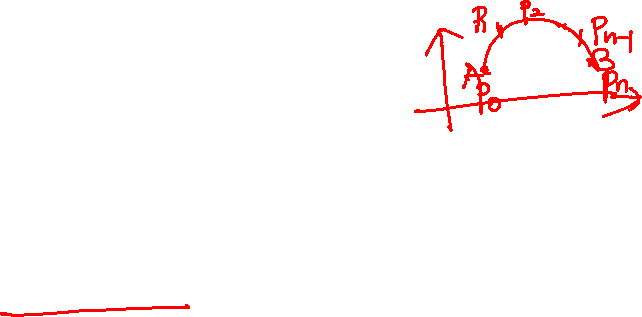 P₁ P₂ Pn-1
A B
P₀ Pn